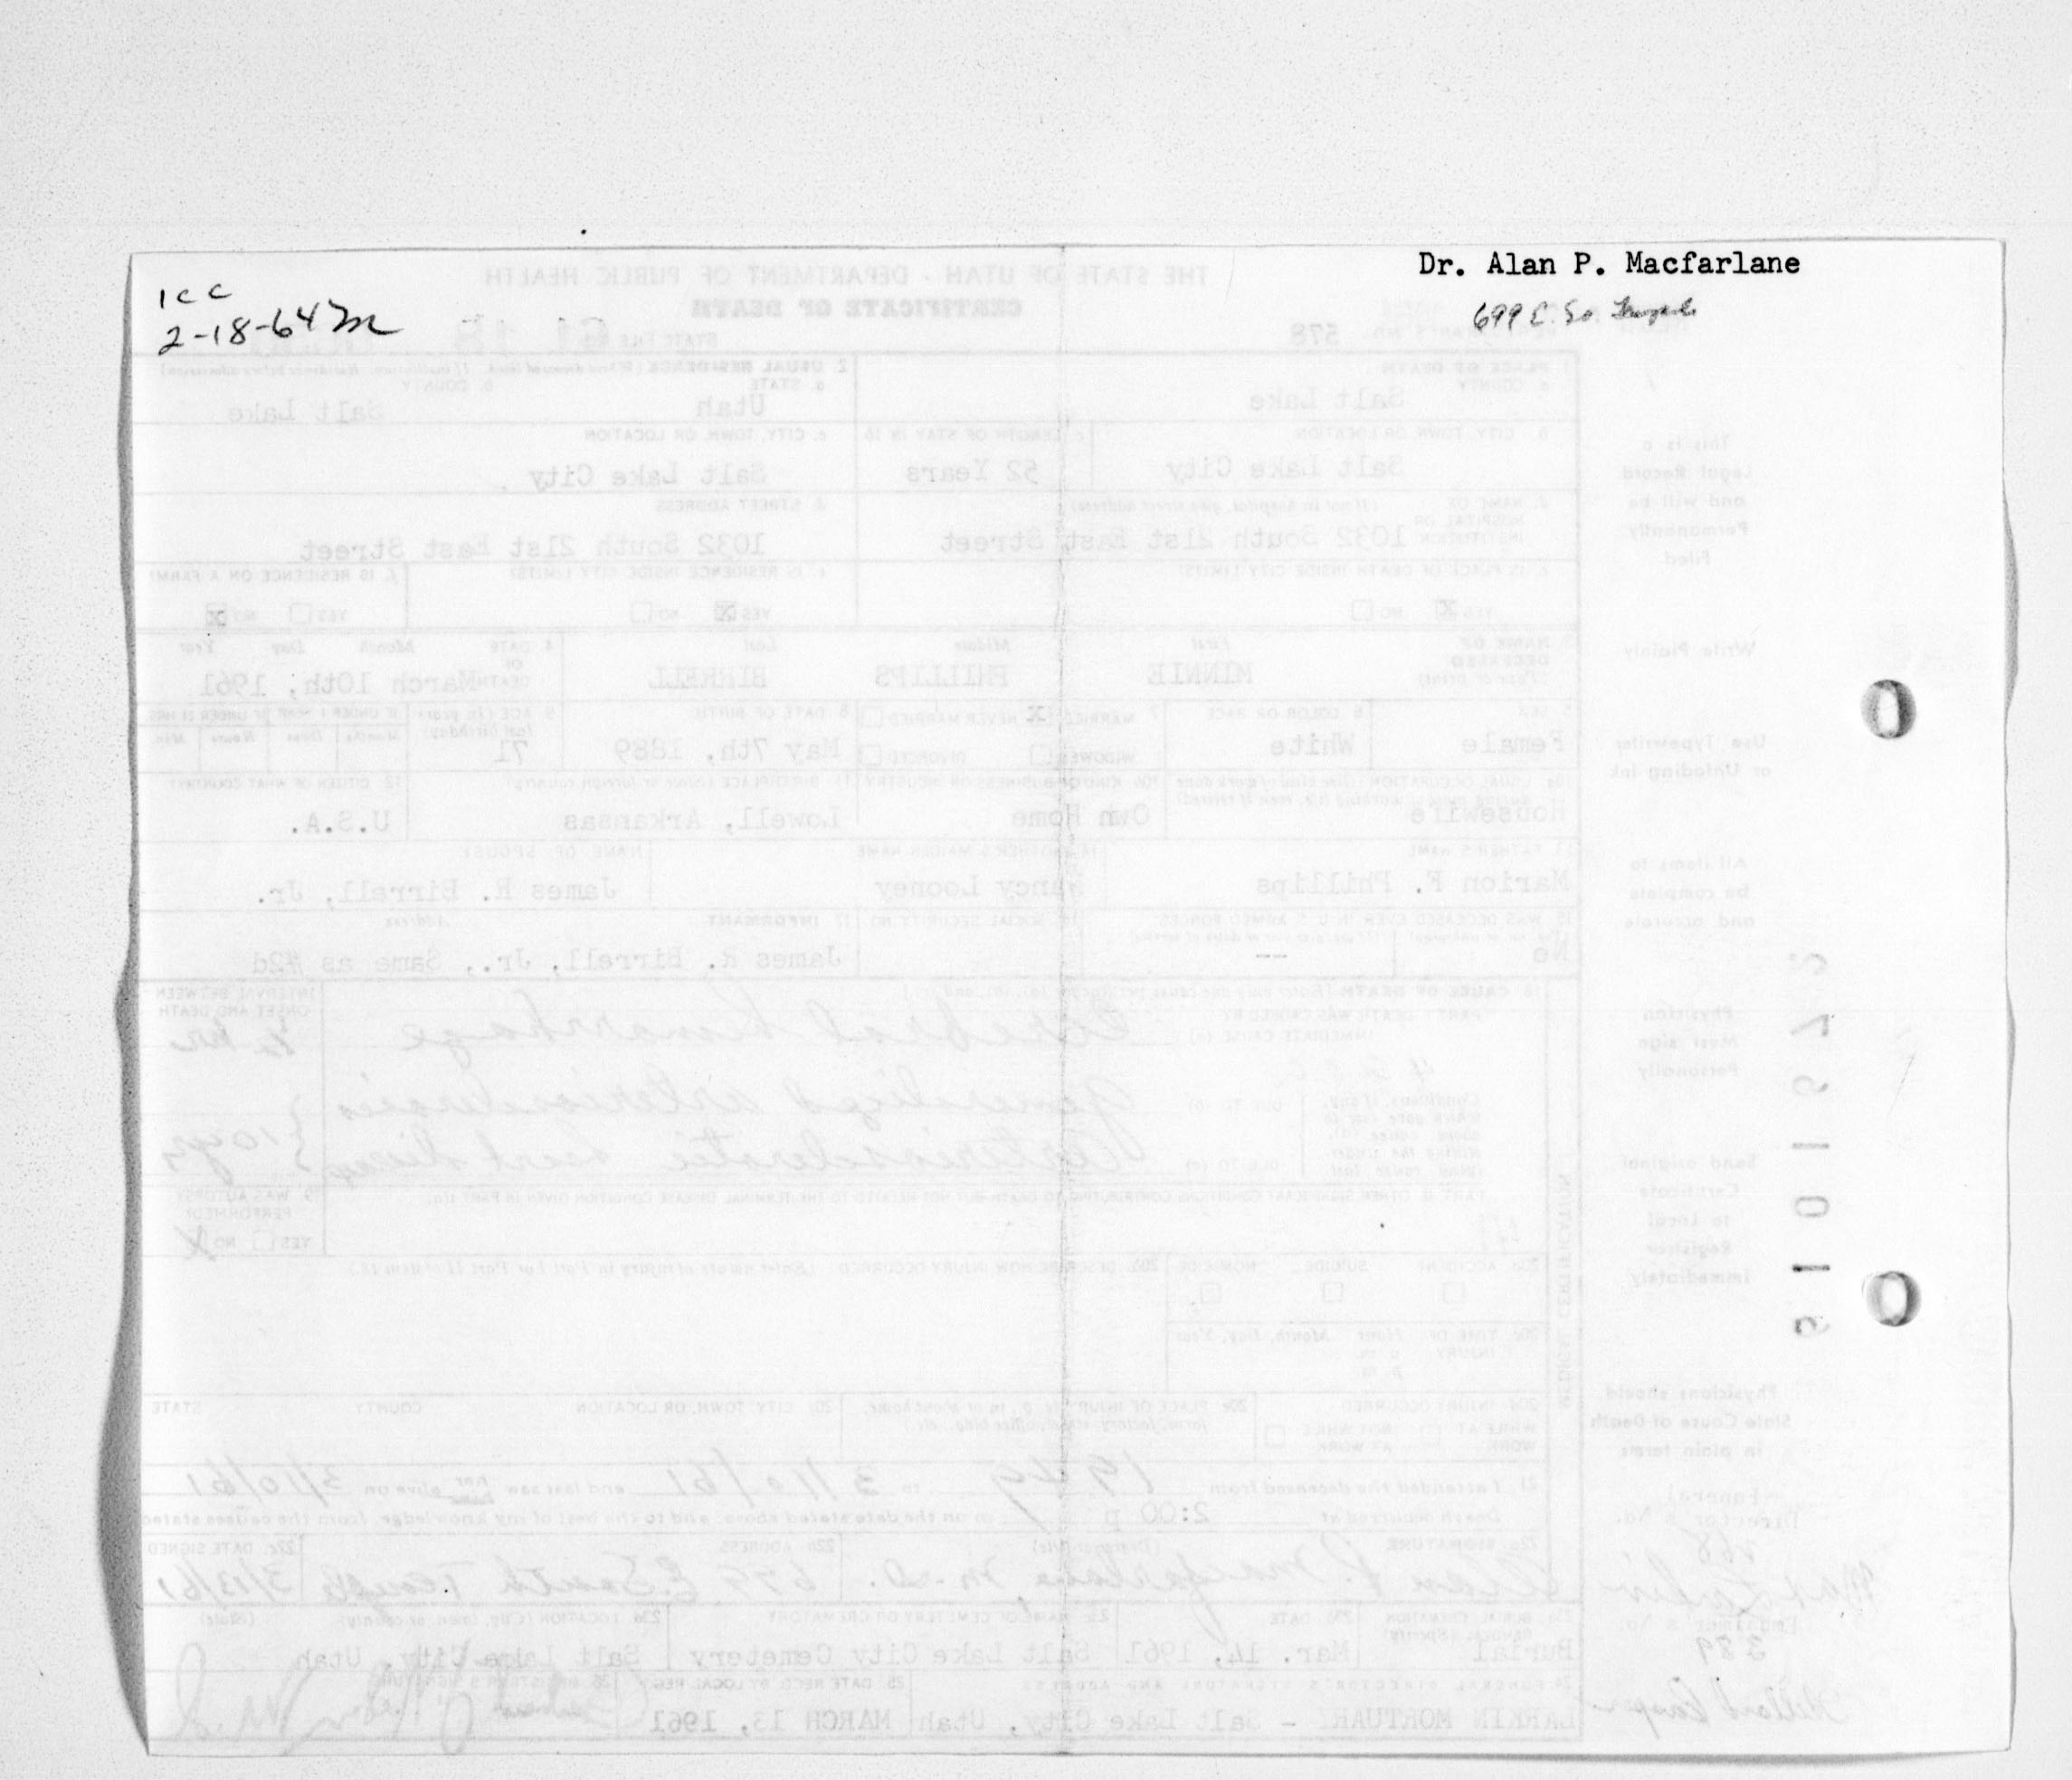 Dr. Alan P. Macfarlane
699 E. So. Temple
1 C C
2-18-64 m
THE STATE OF UTAH - DEPARTMENT OF PUBLIC HEALTH
CERTIFICATE OF DEATH
578
STATE FILE
PLACE OF DEATH
a. COUNTY
Salt Lake
2 USUAL RESIDENCE
a. STATE
Utah
b. COUNTY
Salt Lake
b. CITY, TOWN, OR LOCATION
Salt Lake City
c. LENGTH OF STAY IN 1b
52 Years
c. CITY, TOWN, OR LOCATION
Salt Lake City
d. NAME OF HOSPITAL OR INSTITUTION
(If not in hospital, give street address)
1032 South 21st East Street
d. STREET ADDRESS
1032 South 21st East Street
e. IS PLACE OF DEATH INSIDE CITY LIMITS?
YES X NO
e. IS RESIDENCE INSIDE CITY LIMITS?
YES X NO
f. IS RESIDENCE ON A FARM?
YES NO X
NAME OF DECEASED
(Type or print)
First Middle Last
MINNIE PHILLIPS BIRRELL
4. DATE OF DEATH
Month Day Year
March 10th, 1961
5. SEX
Female
6. COLOR OR RACE
White
7. MARRIED X NEVER MARRIED
WIDOWED DIVORCED
8. DATE OF BIRTH
May 7th, 1889
9. AGE (In years last birthday)
71
Housewife
Own Home
Lowell, Arkansas
12. CITIZEN OF WHAT COUNTRY?
U.S.A.
13. FATHER'S NAME
Marion F. Phillips
14. MOTHER'S MAIDEN NAME
Nancy Looney
NAME OF SPOUSE
James R. Birrell, Jr.
15. WAS DECEASED EVER IN U. S. ARMED FORCES?
No --
16. SOCIAL SECURITY NO.
17. INFORMANT Address
James R. Birrell, Jr., Same as #2d
18. CAUSE OF DEATH
PART I. DEATH WAS CAUSED BY
IMMEDIATE CAUSE (a)
Cerebral hemorrhage
INTERVAL BETWEEN ONSET AND DEATH
½ hr
DUE TO (b)
Generalized arteriosclerosis
DUE TO (c)
Arteriosclerotic heart disease
10 yrs
19. WAS AUTOPSY PERFORMED?
YES NO X
20a. ACCIDENT SUICIDE HOMICIDE
20b. DESCRIBE HOW INJURY OCCURRED
20c. TIME OF INJURY Hour Month, Day, Year
a. m.
p. m.
20d. INJURY OCCURRED
WHILE AT WORK NOT WHILE AT WORK
20f. CITY, TOWN, OR LOCATION COUNTY STATE
21. I attended the deceased from 1949 to 3/10/61 and last saw her alive on 3/10/61
Death occurred at 2:00 p m on the date stated above; and to the best of my knowledge, from the causes stated
22a. SIGNATURE
Alan P. Macfarlane M.D.
22b. ADDRESS
699 E. South Temple
22c. DATE SIGNED
3/13/61
Burial
23b. DATE
Mar. 14, 1961
23c. NAME OF CEMETERY OR CREMATORY
Salt Lake City Cemetery
23d. LOCATION (City, town, or county) (State)
Salt Lake City, Utah
LARKIN MORTUARY - Salt Lake City, Utah
25. DATE RECD BY LOCAL REG.
MARCH 13, 1961
26. REGISTRAR'S SIGNATURE
This is a Legal Record and will be Permanently Filed
Write Plainly
Use Typewriter or Unfading Ink
All items to be complete and accurate
Physician Must sign Personally
Send original Certificate to Local Registrar Immediately
Physicians should State Cause of Death in plain terms
Funeral Director's No.